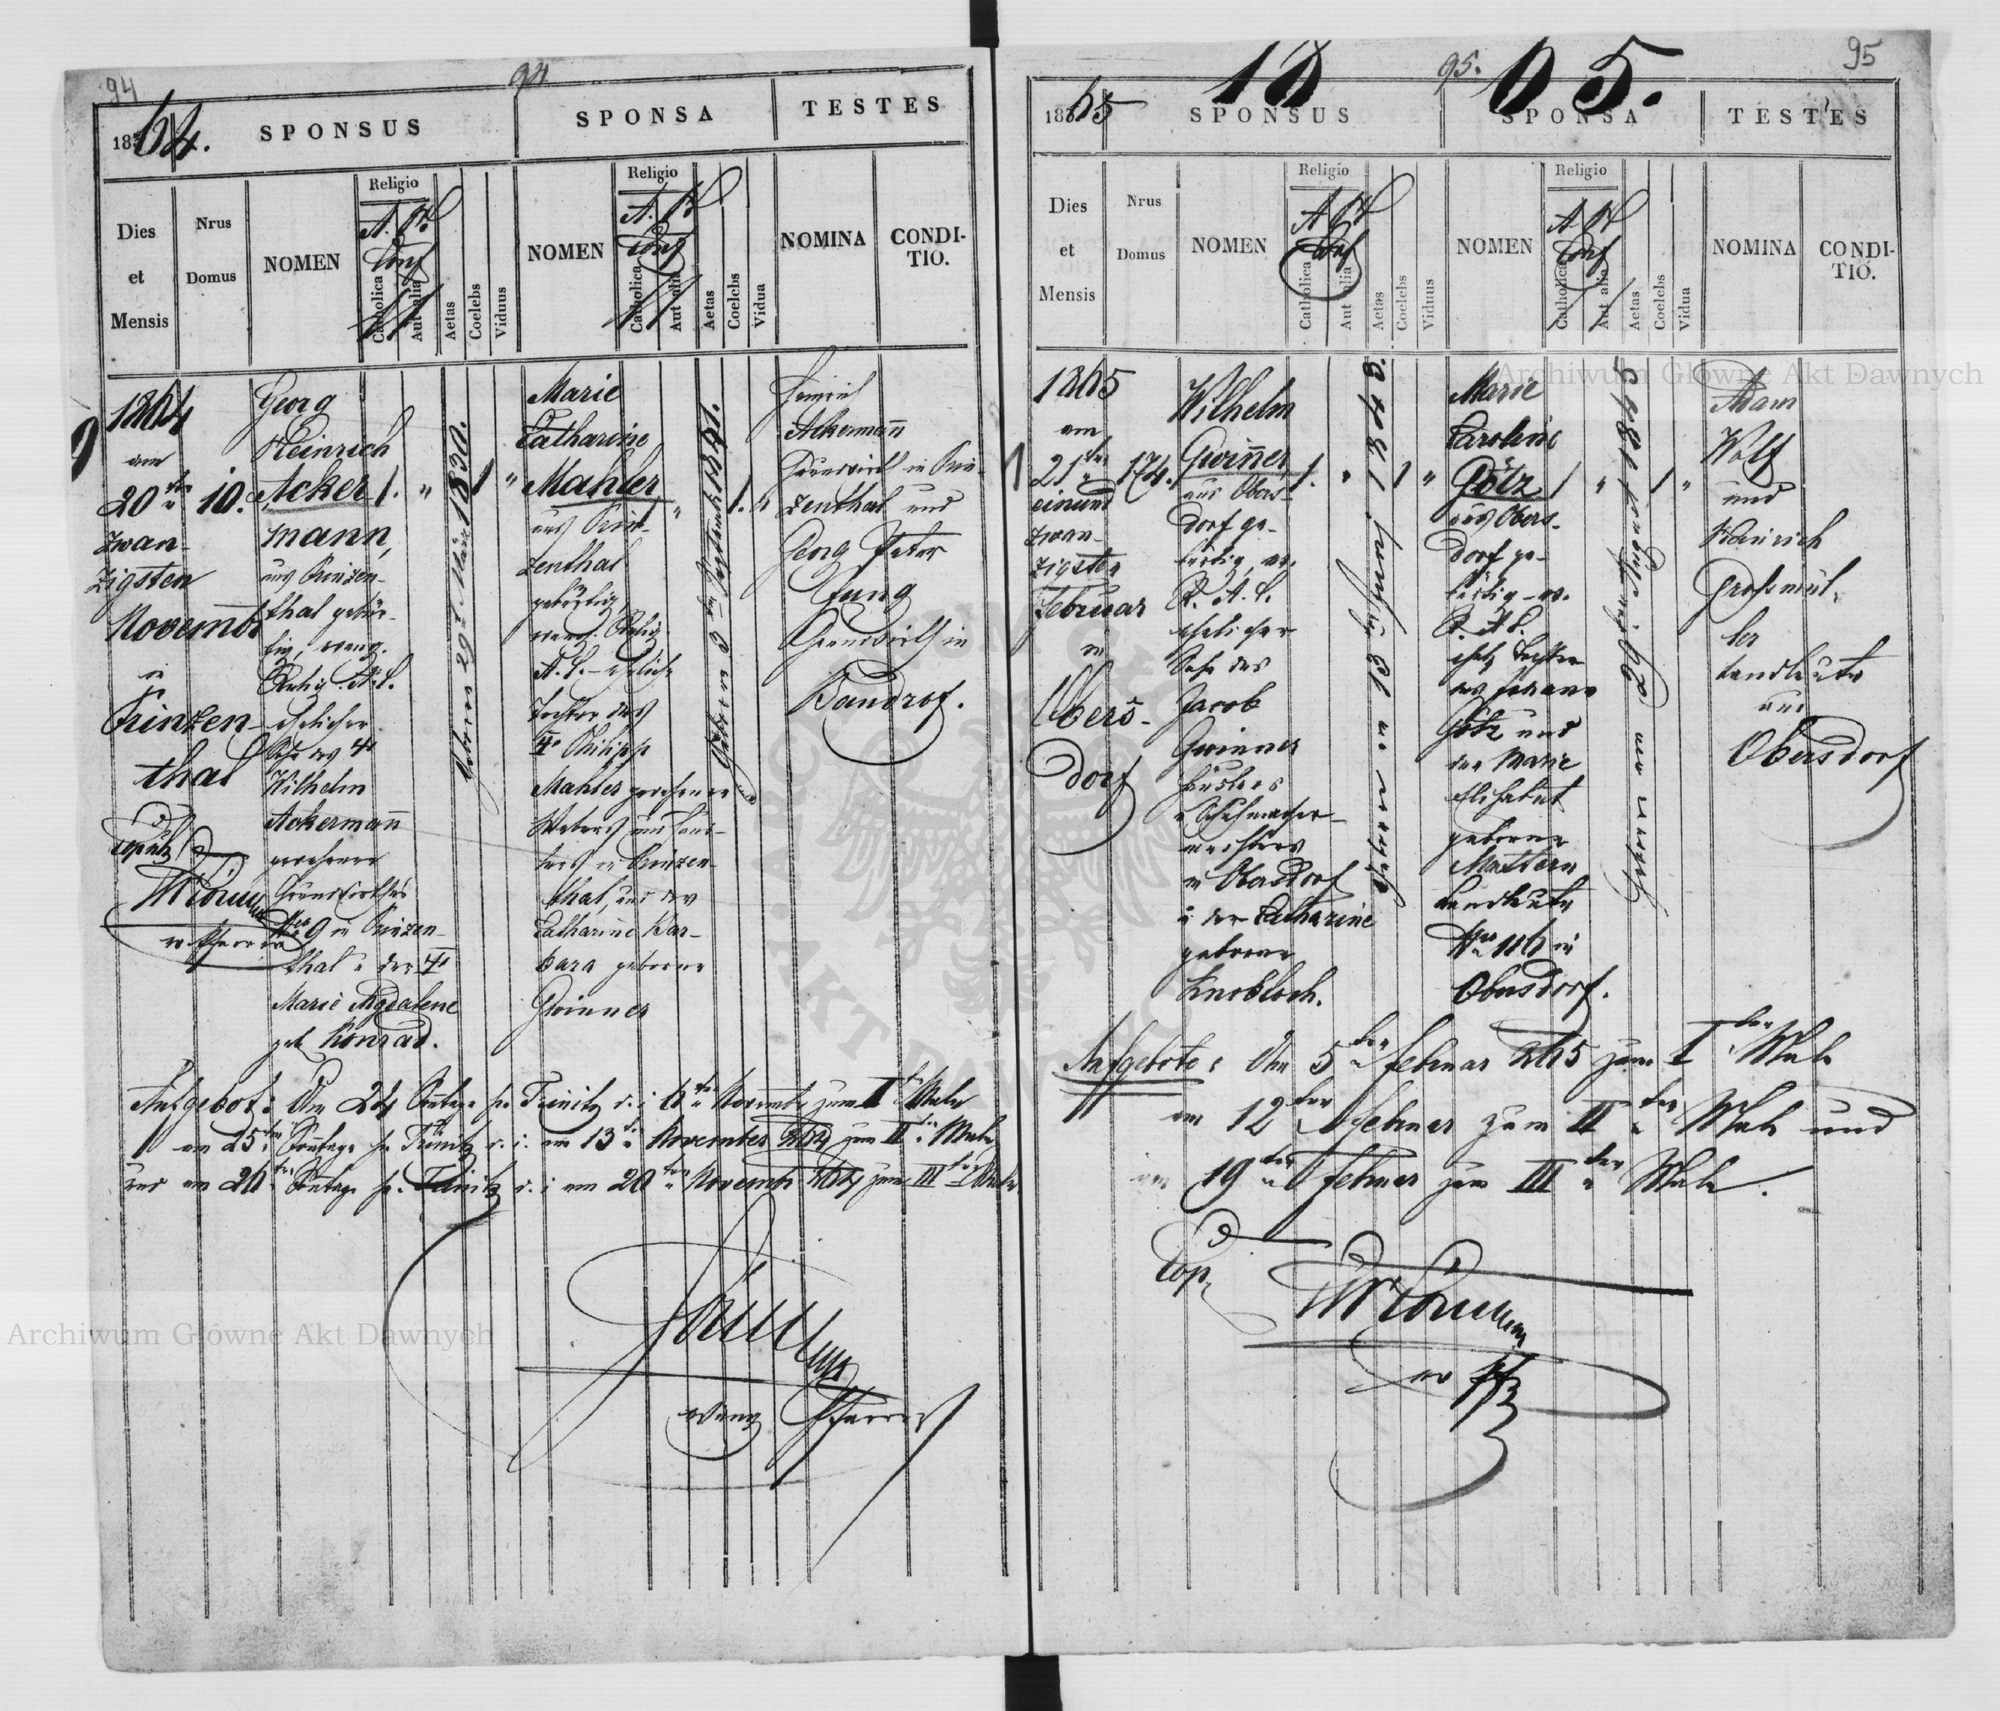 94
94
1864.
SPONSUS
SPONSA
TESTES
Dies
et
Mensis
Nrus
Domus
NOMEN
Religio
A. 
Conf
Catholica
Aut alia
Aetas
Coelebs
Viduus
NOMEN
Religio
A. 
Conf
Catholica
Aut alia
Aetas
Coelebs
Vidua
NOMINA
CONDI-
TIO.
9
1864
am
20
zwan-
zigsten
Novembr
in
Prinzen-
thal
10.
Georg
Heinrich
Acker
mann,
aus Prinzen-
thal gebür-
tig, evang.
Relig. A. C.
ehelicher
Sohn des
Wilhelm
Ackermann
gewesenen
Grundwirthes
Nro 9 in Prinzen-
thal u der
Marie Magdalene
geb Konrad.
1. " 1 "
geboren 29t März 1830.
Marie
Catharine
Mahler
aus Prin-
zenthal
gebürtig,
evang. Relig
A. C. – eheliche
Tochter des
Philipp
Mahler gewesenen
Webers und
in Prinzen-
thal, und der
Catharine Bar-
bara geborne
Gwinner
" 1. "
Geboren 3 September 1841.
Heinrich
Ackermann
Grundwirth in Prin-
zenthal und
Georg Peter
Jung
Grundwirth in
Bandrof.
Copulz
ev Pfarrer
Aufgebot: Am 24 Sonntage p. Trinitz d. i 6 Novembr zum I Male
am 25 Sonntage p. Trinitz d. i. am 13 November 864 zum II Male
und am 26 Sonntage p. Trinitz d. i am 20 Novembr 864 zum III Male
evang Pfarrer
95.
95
1865
1865.
SPONSUS
SPONSA
TESTES
Dies
et
Mensis
Nrus
Domus
NOMEN
Religio
A 
Conf
Catholica
Aut alia
Aetas
Coelebs
Viduus
NOMEN
Religio
A 
Conf
Catholica
Aut alia
Aetas
Coelebs
Vidua
NOMINA
CONDI-
TIO.
1
1865
am
21
einund
zwan-
zigsten
Februar
in
Obers-
dorf
174.
Wilhelm
Gwinner
aus Obers-
dorf ge-
bürtig, ev.
R. A. C.
ehelicher
Sohn des
Jacob
Gwinner
Häuslers
u Schuhmacher-
meisters
in Obersdorf
u der Catharine
geborene
Knobloch.
1. " 1 "
Marie
Caroline
Götz
aus Obers-
dorf ge-
bürtig – ev.
R. A. C.
ehel. Tochter
des Johann
Götz und
der Marie
Elisabet
geborene
Mattern
Landleute
Nro 116 in
Obersdorf.
1 " 1 "
Adam
Wolf
und
Heinrich
Grossmül-
ler
Landleute
aus
Obersdorf
Aufgebote: Am 5 Februar 865 zum I Male
am 12 Februar zum II Male und
am 19 Februar zum III Male.
Cop
ev Pf
Archiwum Główne Akt Dawnych
Archiwum Główne Akt Dawnych